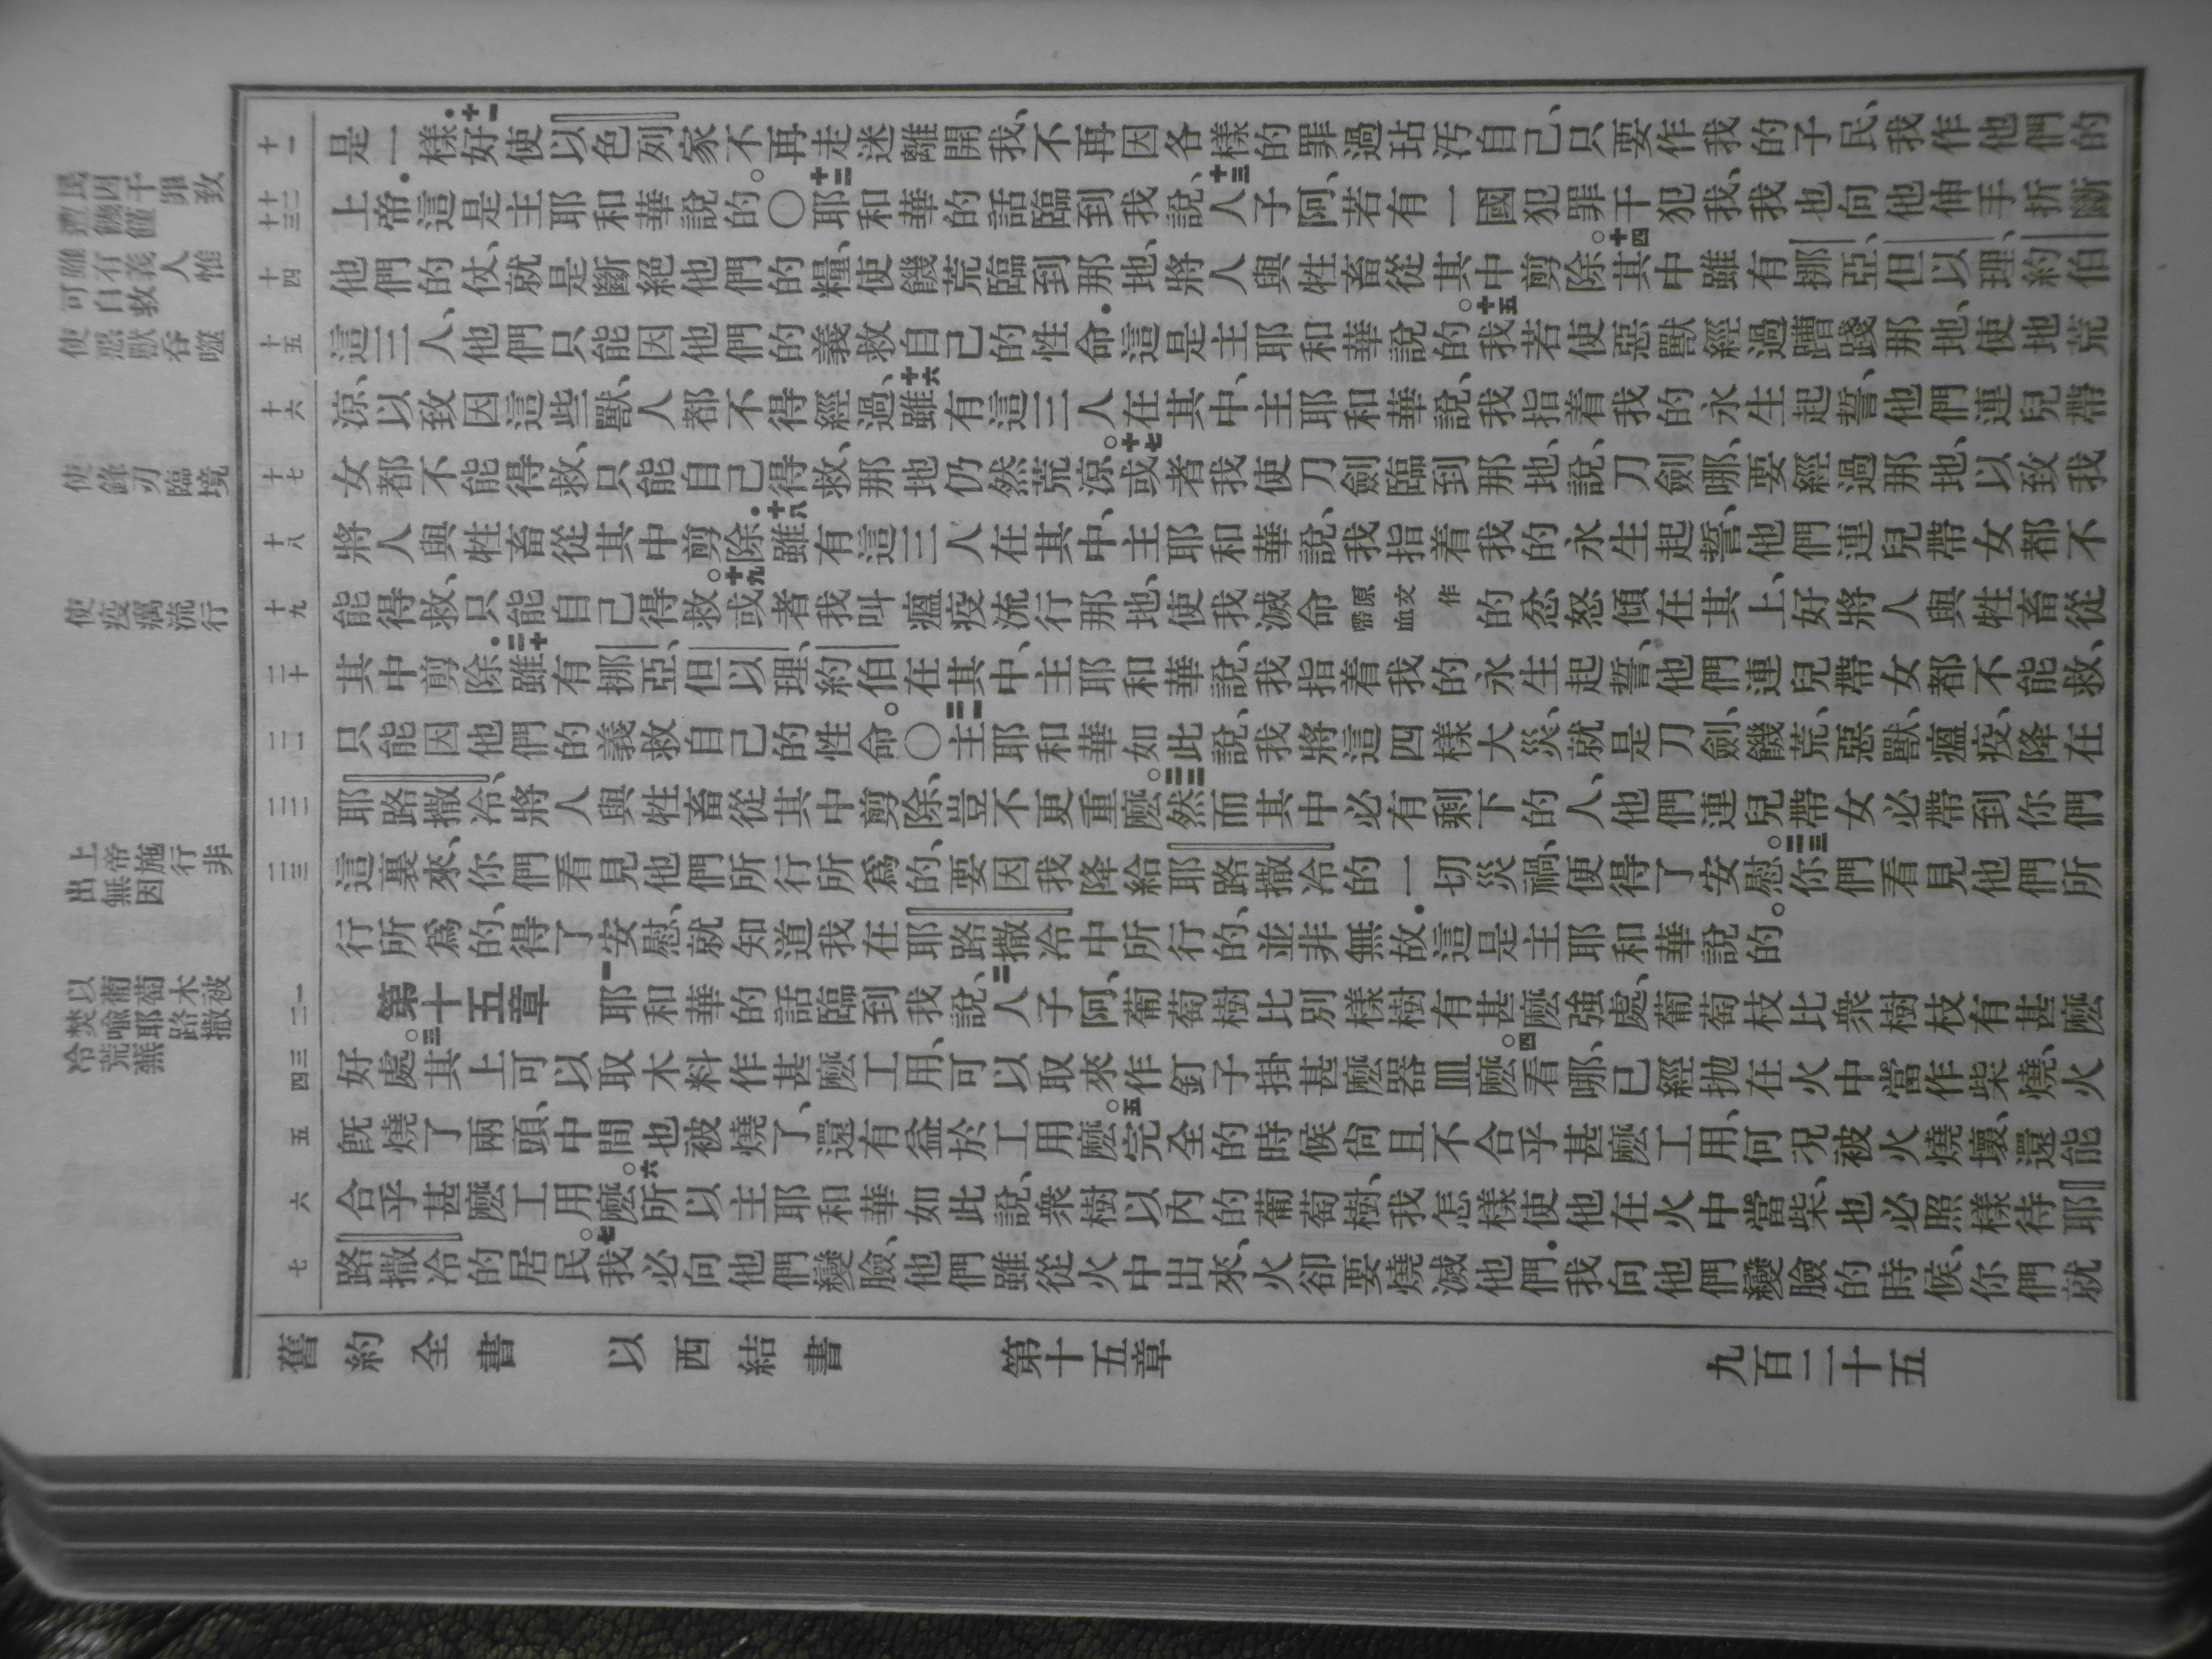 民因干罪致
遭饑饉
雖有義人惟
可自救
使惡獸吞噬
使鋒刃臨境
使疫癘流行
上帝施行非
出無因
以葡萄木被
焚喻耶路撒
冷荒蕪
十一
是一樣．十一好使以色列家不再走迷離開我、不再因各樣的罪過玷污自己、只要作我的子民、我作他們的
十二 十三
上帝．這是主耶和華說的。○十二耶和華的話臨到我說、十三人子阿、若有一國犯罪干犯我、我也向他伸手折斷
十四
他們的仗、就是斷絕他們的糧、使饑荒臨到那地、將人與牲畜從其中剪除。十四其中雖有挪亞、但以理、約伯
十五
這三人、他們只能因他們的義救自己的性命．這是主耶和華說的。十五我若使惡獸經過蹧踐那地、使地荒
十六
涼、以致因這些獸、人都不得經過、十六雖有這三人在其中、主耶和華說、我指着我的永生起誓、他們連兒帶
十七
女都不能得救、只能自己得救、那地仍然荒涼。十七或者我使刀劍臨到那地、說、刀劍哪、要經過那地、以致我
十八
將人與牲畜從其中剪除．十八雖有這三人在其中、主耶和華說、我指着我的永生起誓、他們連兒帶女都不
十九
能得救、只能自己得救。十九或者我叫瘟疫流行那地、使我滅命原文作帶血的忿怒傾在其上、好將人與牲畜從
二十
其中剪除．二十雖有挪亞、但以理、約伯在其中、主耶和華說、我指着我的永生起誓、他們連兒帶女都不能救、
二一
只能因他們的義救自己的性命。○二一主耶和華如此說、我將這四樣大災、就是刀劍、饑荒、惡獸、瘟疫、降在
二二
耶路撒冷、將人與牲畜從其中剪除、豈不更重麼。二二然而其中必有剩下的人、他們連兒帶女必帶到你們
二三
這裏來、你們看見他們所行所爲的、要因我降給耶路撒冷的一切災禍、便得了安慰。二三你們看見他們所
行所爲的、得了安慰、就知道我在耶路撒冷中所行的、並非無故．這是主耶和華說的。
一 二
第十五章 一耶和華的話臨到我說、二人子阿、葡萄樹比別樣樹有甚麼強處、葡萄枝比衆樹枝有甚麼
三 四
好處。三其上可以取木料作甚麼工用、可以取來作釘子掛甚麼器皿麼。四看哪、已經抛在火中當作柴燒、火
五
既燒了兩頭、中間也被燒了、還有益於工用麼。五完全的時候尚且不合乎甚麼工用、何況被火燒壞、還能
六
合乎甚麼工用麼。六所以主耶和華如此說、衆樹以內的葡萄樹、我怎樣使他在火中當柴、也必照樣待耶
七
路撒冷的居民。七我必向他們變臉、他們雖從火中出來、火卻要燒滅他們．我向他們變臉的時候、你們就
舊約全書 以西結書 第十五章 九百二十五